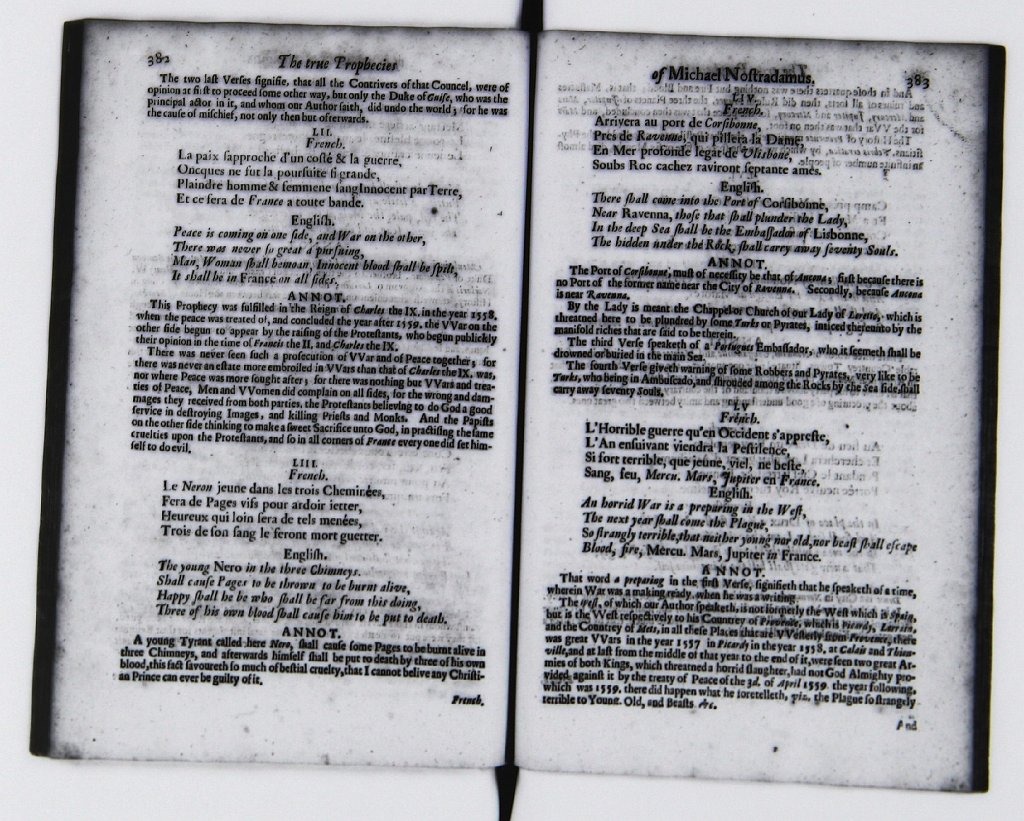 382
The true Prophecies
The two laſt Verſes ſignifie, that all the Contrivers of that Councel, were of
opinion at firſt to proceed ſome other way, but only the Duke of Guiſe, who was the
principal actor in it, and whom our Author ſaith, did undo the world; for he was
the cauſe of miſchief, not only then but ofterwards.
LII.
French.
La paix ſapproche d'un coſté & la guerre,
Oncques ne fut la pourſuite ſi grande,
Plaindre homme & femmene ſang Innocent par Terre,
Et ce ſera de France a toute bande.
Engliſh.
Peace is coming on one ſide, and War on the other,
There was never ſo great a purſuing,
Man, Woman ſhall bemoan, Innocent blood ſhall be ſpilt,
It ſhall be in France on all ſides.
ANNOT.
This Prophecy was fulfilled in the Reign of Charles the IX. in the year 1558,
when the peace was treated of, and concluded the year after 1559. the VVar on the
other ſide begun to appear by the raiſing of the Proteſtants, who begun publickly
their opinion in the time of Francis the II, and Charles the IX.
There was never ſeen ſuch a proſecution of VVar and of Peace together; for
there was never an eſtate more embroiled in VVars than that of Charles the IX. was,
nor where Peace was more ſought after; for there was nothing but VVars and trea-
ties of Peace, Men and VVomen did complain on all ſides, for the wrong and dam-
mages they received from both parties, the Proteſtants believing to do God a good
ſervice in deſtroying Images, and killing Prieſts and Monks. And the Papiſts
on the other ſide thinking to make a ſweet Sacrifice unto God, in practiſing the ſame
cruelties upon the Proteſtants, and ſo in all corners of France every one did ſet him-
ſelf to do evil.
LIII.
French.
Le Neron jeune dans les trois Cheminées,
Fera de Pages vifs pour ardoir ietter,
Heureux qui loin ſera de tels menées,
Trois de ſon ſang le feront mort guetter.
Engliſh.
The young Nero in the three Chimneys.
Shall cauſe Pages to be thrown to be burnt alive,
Happy ſhall he be who ſhall be far from this doing,
Three of his own blood ſhall cauſe him to be put to death.
ANNOT.
A young Tyrant called here Nero, ſhall cauſe ſome Pages to be burnt alive in
three Chimneys, and afterwards himſelf ſhall be put to death by three of his own
blood, this fact ſavoureth ſo much of beſtial cruelty, that I cannot belive any Chriſti-
an Prince can ever be guilty of it.
French.
of Michael Noſtradamus.
383
LIV.
French.
Arrivera au port de Corſibonne,
Prés de Ravenne, qui pillera la Dame,
En Mer profonde legat de Vlisbone,
Soubs Roc cachez raviront ſeptante ames.
Engliſh.
There ſhall come into the Port of Corſibonne,
Near Ravenna, thoſe that ſhall plunder the Lady,
In the deep Sea ſhall be the Embaſſador of Lisbonne,
The hidden under the Rock, ſhall carry away ſeventy Souls.
ANNOT.
The Port of Corſibonne, muſt of neceſſity be that of Ancona; firſt becauſe there is
no Port of the former name near the City of Ravenna. Secondly, becauſe Ancona
is near Ravenna.
By the Lady is meant the Chappel or Church of our Lady of Loretto, which is
threatned here to be plundred by ſome Turks or Pyrates, inticed thereunto by the
manifold riches that are ſaid to be therein.
The third Verſe ſpeketh of a Portugues Embaſſador, who it ſeemeth ſhall be
drowned or buried in the main Sea.
The fourth Verſe giveth warning of ſome Robbers and Pyrates, very like to be
Turks, who being in Ambuſcado, and ſhrouded among the Rocks by the Sea ſide, ſhall
carry away ſeventy Souls.
LV
French.
L'Horrible guerre qu'en Occident s'appreſte,
L'An enſuivant viendra la Peſtilence,
Si fort terrible, que jeune, viel, ne beſte,
Sang, feu, Mercu. Mars, Jupiter en France.
Engliſh.
An horrid War is a preparing in the Weſt,
The next year ſhall come the Plague,
So ſtrangly terrible, that neither young nor old, nor beaſt ſhall eſcape
Blood, fire, Mercu. Mars, Jupiter in France.
ANNOT.
That word a preparing in the firſt Verſe, ſignifieth that he ſpeaketh of a time,
wherein War was a making ready, when he was a writing.
The Weſt, of which our Author ſpeaketh, is not formerly the Weſt which is Spain,
but is the Weſt reſpectively to his Countrey of Provence, which is Picardy, Lorrain,
and the Countrey of Mets, in all theſe Places that are VVeſterly from Provence, there
was great VVars in the year 1557 in Picardy in the year 1558, at Calais and Thion-
ville, and at laſt from the middle of that year to the end of it, were ſeen two great Ar-
mies of both Kings, which threatned a horrid ſlaughter, had not God Almighty pro-
vided againſt it by the treaty of Peace of the 3d. of April 1559. the year following,
which was 1559. there did happen what he foretelleth, viz. the Plague ſo ſtrangely
terrible to Young, Old, and Beaſts &c.
And